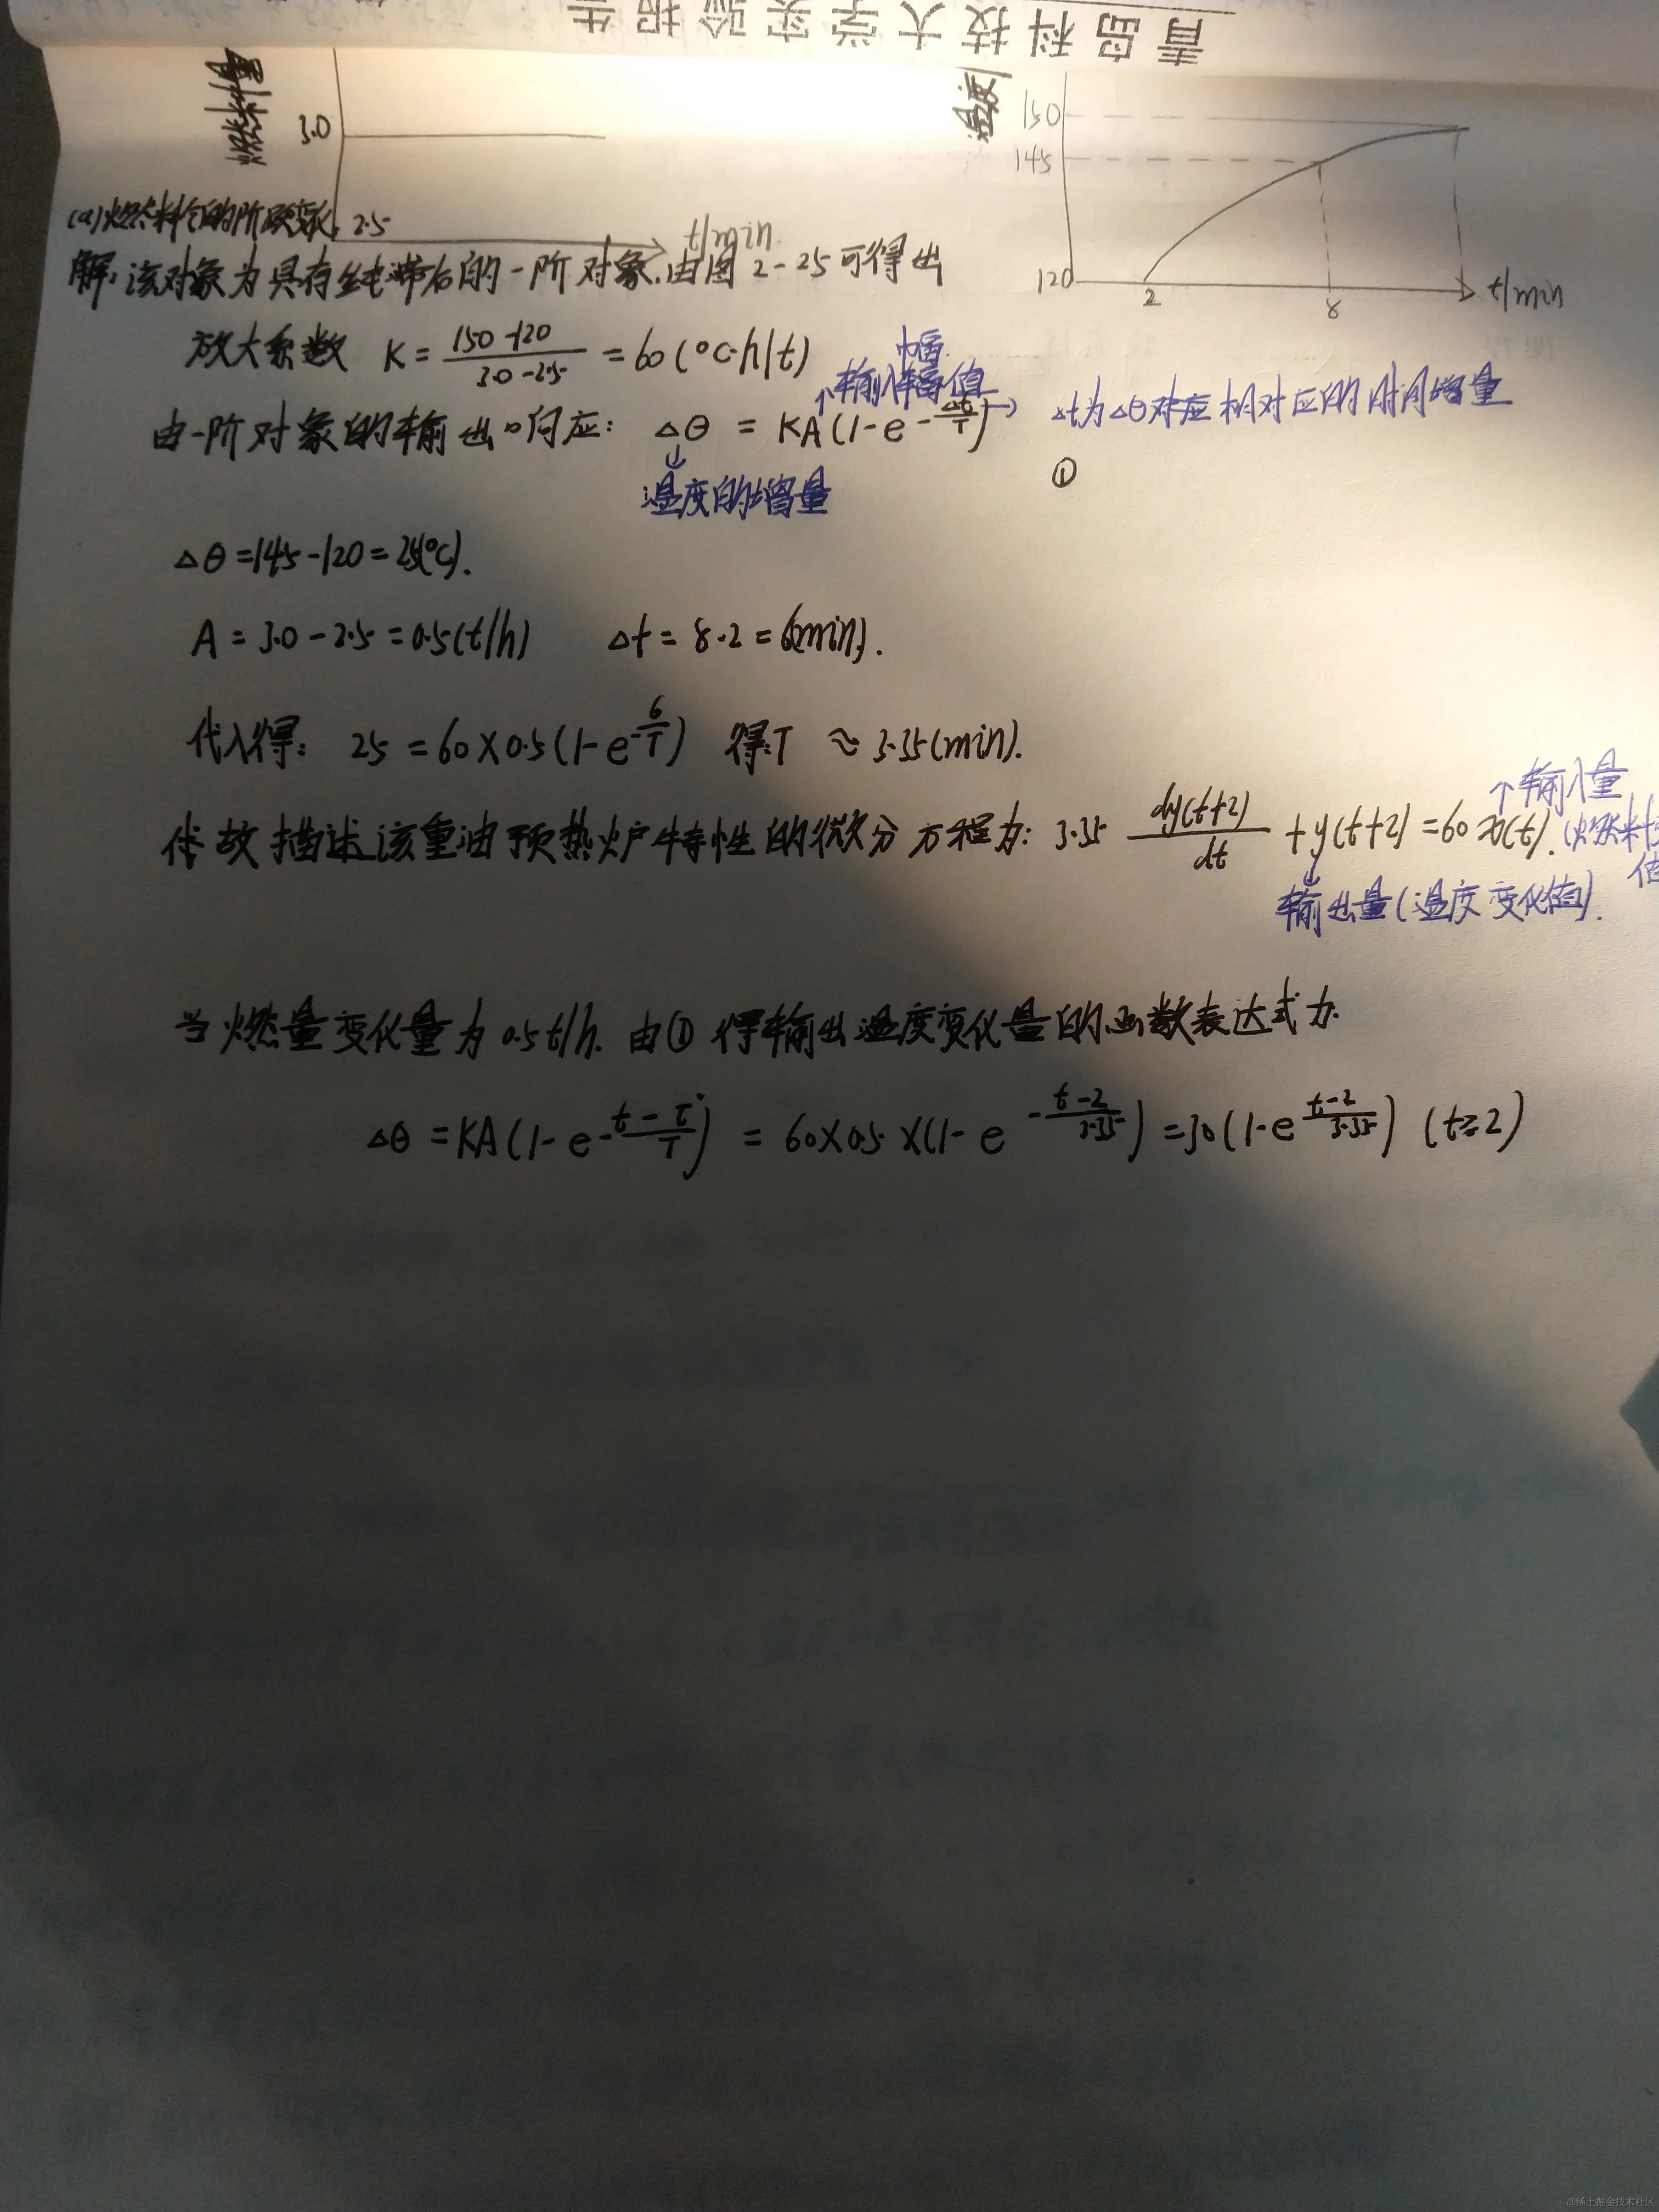 青岛科技大学实验报告
燃料量
3.0
温度
150
145
(a)燃料的阶跃变化 2.5
t/min
120
2
8
t/min
解:该对象为具有纯滞后的一阶对象.由图2-25可得出
放大系数 K = (150-120)/(3.0-2.5) = 60(℃·h/t)
幅
↑输入幅值
由一阶对象的输出响应: △θ = KA(1-e^(-△t/T)) → △t为△θ对应相对应的时间增量
↓
温度的增量
①
△θ=145-120=25(℃).
A = 3.0-2.5=0.5(t/h) △t = 8-2=6(min).
代入得: 25 = 60×0.5(1-e^(-6/T)) 得:T ≈ 3.35(min).
↑输入量
故描述该重油预热炉特性的微分方程为: 3.35 dy(t+2)/dt + y(t+2) = 60 x(t). (燃料
值
↓
输出量(温度变化值).
当燃量变化量为0.5t/h. 由①得输出温度变化量的函数表达式为.
△θ = KA(1-e^(-(t-τ)/T)) = 60×0.5×(1-e^(-(t-2)/3.35)) = 30(1-e^((t-2)/3.35)) (t≥2)
@稀土掘金技术社区